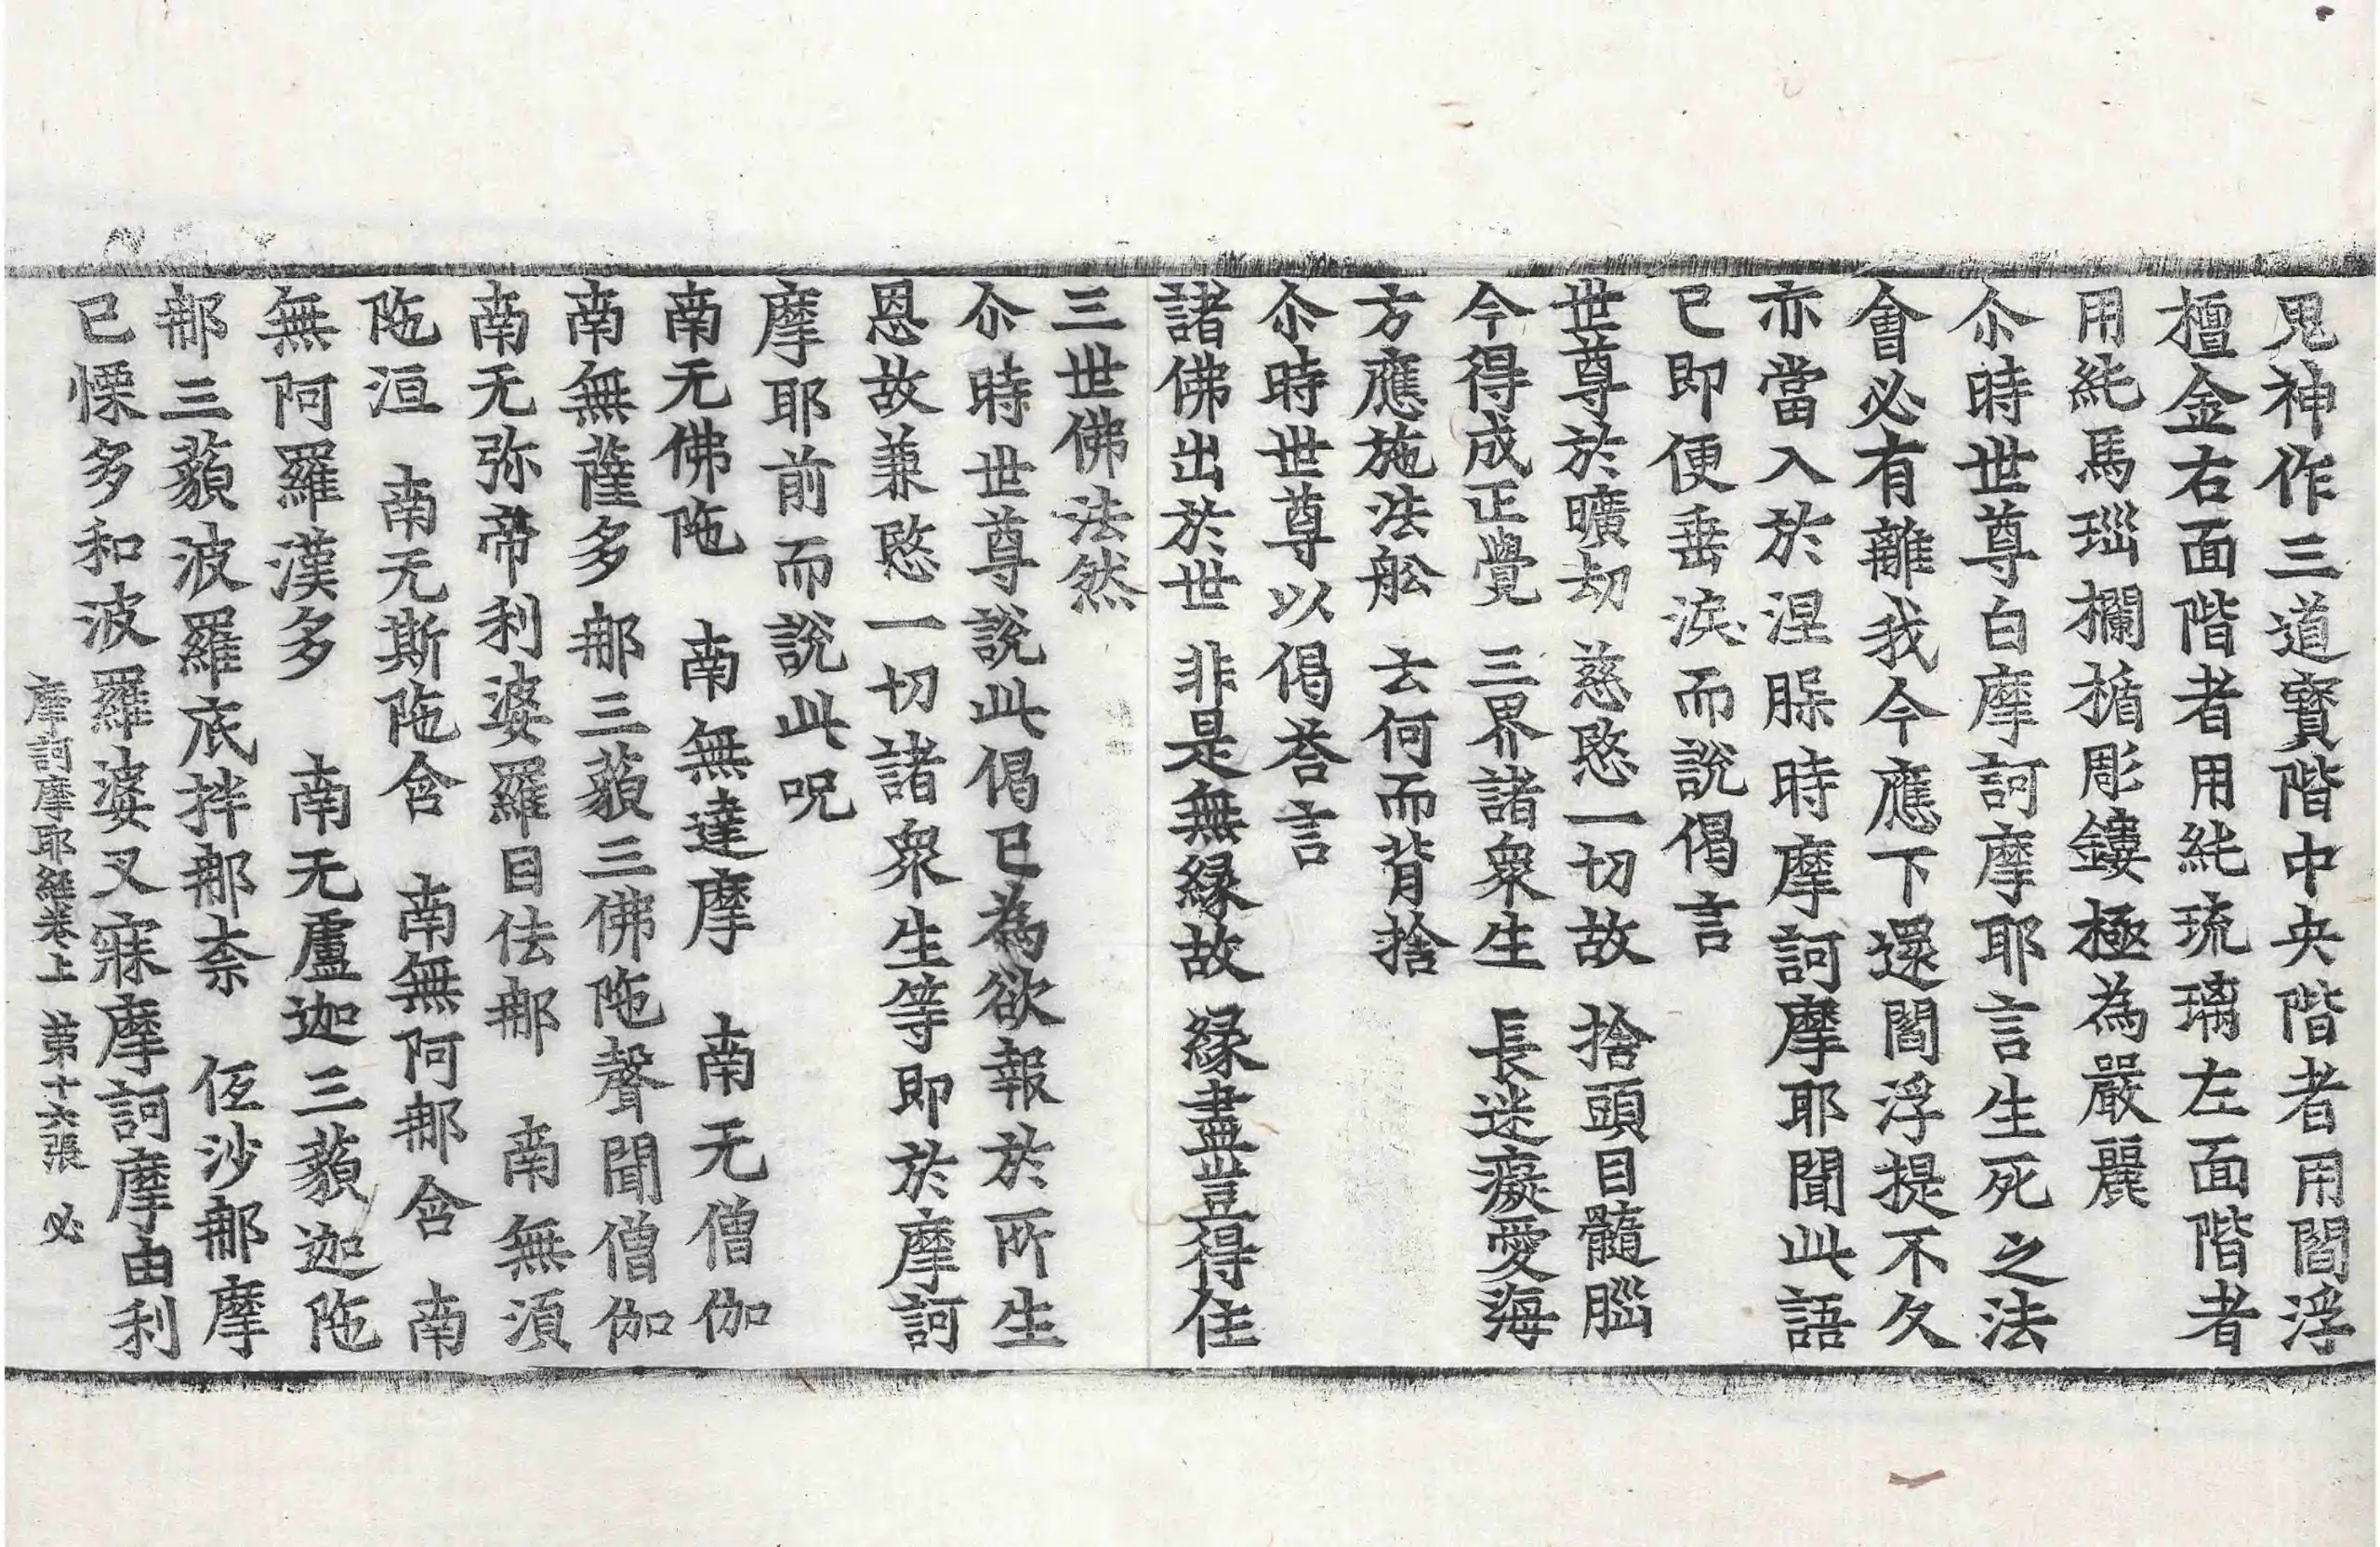 鬼神作三道寳階中央階者用閻浮
檀金右面階者用純琉璃左面階者
用純馬瑙欄楯彫鏤極為嚴麗
尒時世尊白摩訶摩耶言生死之法
會必有離我今應下還閻浮提不久
亦當入於涅槃時摩訶摩耶聞此語
已即便垂淚而說偈言
世尊於曠劫　慈愍一切故　捨頭目髓腦
今得成正覺　三界諸衆生　長迷癡愛海
方應施法舩　云何而背捨
尒時世尊以偈荅言
諸佛出於世　非是無緣故　緣盡豈得住
三世佛法然
尒時世尊說此偈已為欲報於所生
恩故兼愍一切諸衆生等即於摩訶
摩耶前而說此呪
南无佛陁　南無達摩　南无僧伽
南無薩多𨚗三藐三佛陁聲聞僧伽
南无弥帝利婆羅目佉𨚗　南無湏
陁洹　南无斯陁含　南無阿𨚗含　南
無阿羅漢多　南无盧迦三藐迦陁
𨚗三藐波羅底拌𨚗柰　伍沙𨚗摩
已慄多和波羅婆叉寐摩訶摩由利
摩訶摩耶經卷上　第十六張　必